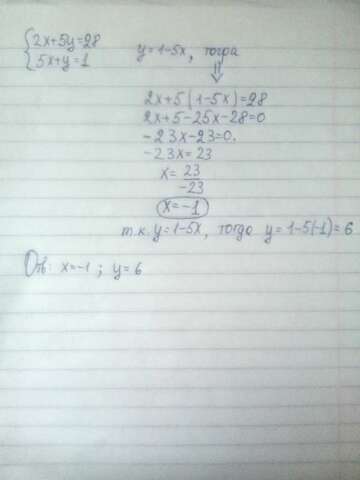 {2x+5y=28
5x+y=1
y=1-5x, тогда
⇓
2x+5(1-5x)=28
2x+5-25x-28=0
-23x-23=0.
-23x=23
x=23/-23
x=-1
т.к. y=1-5x, тогда y=1-5(-1)=6
Отв: x=-1; y=6